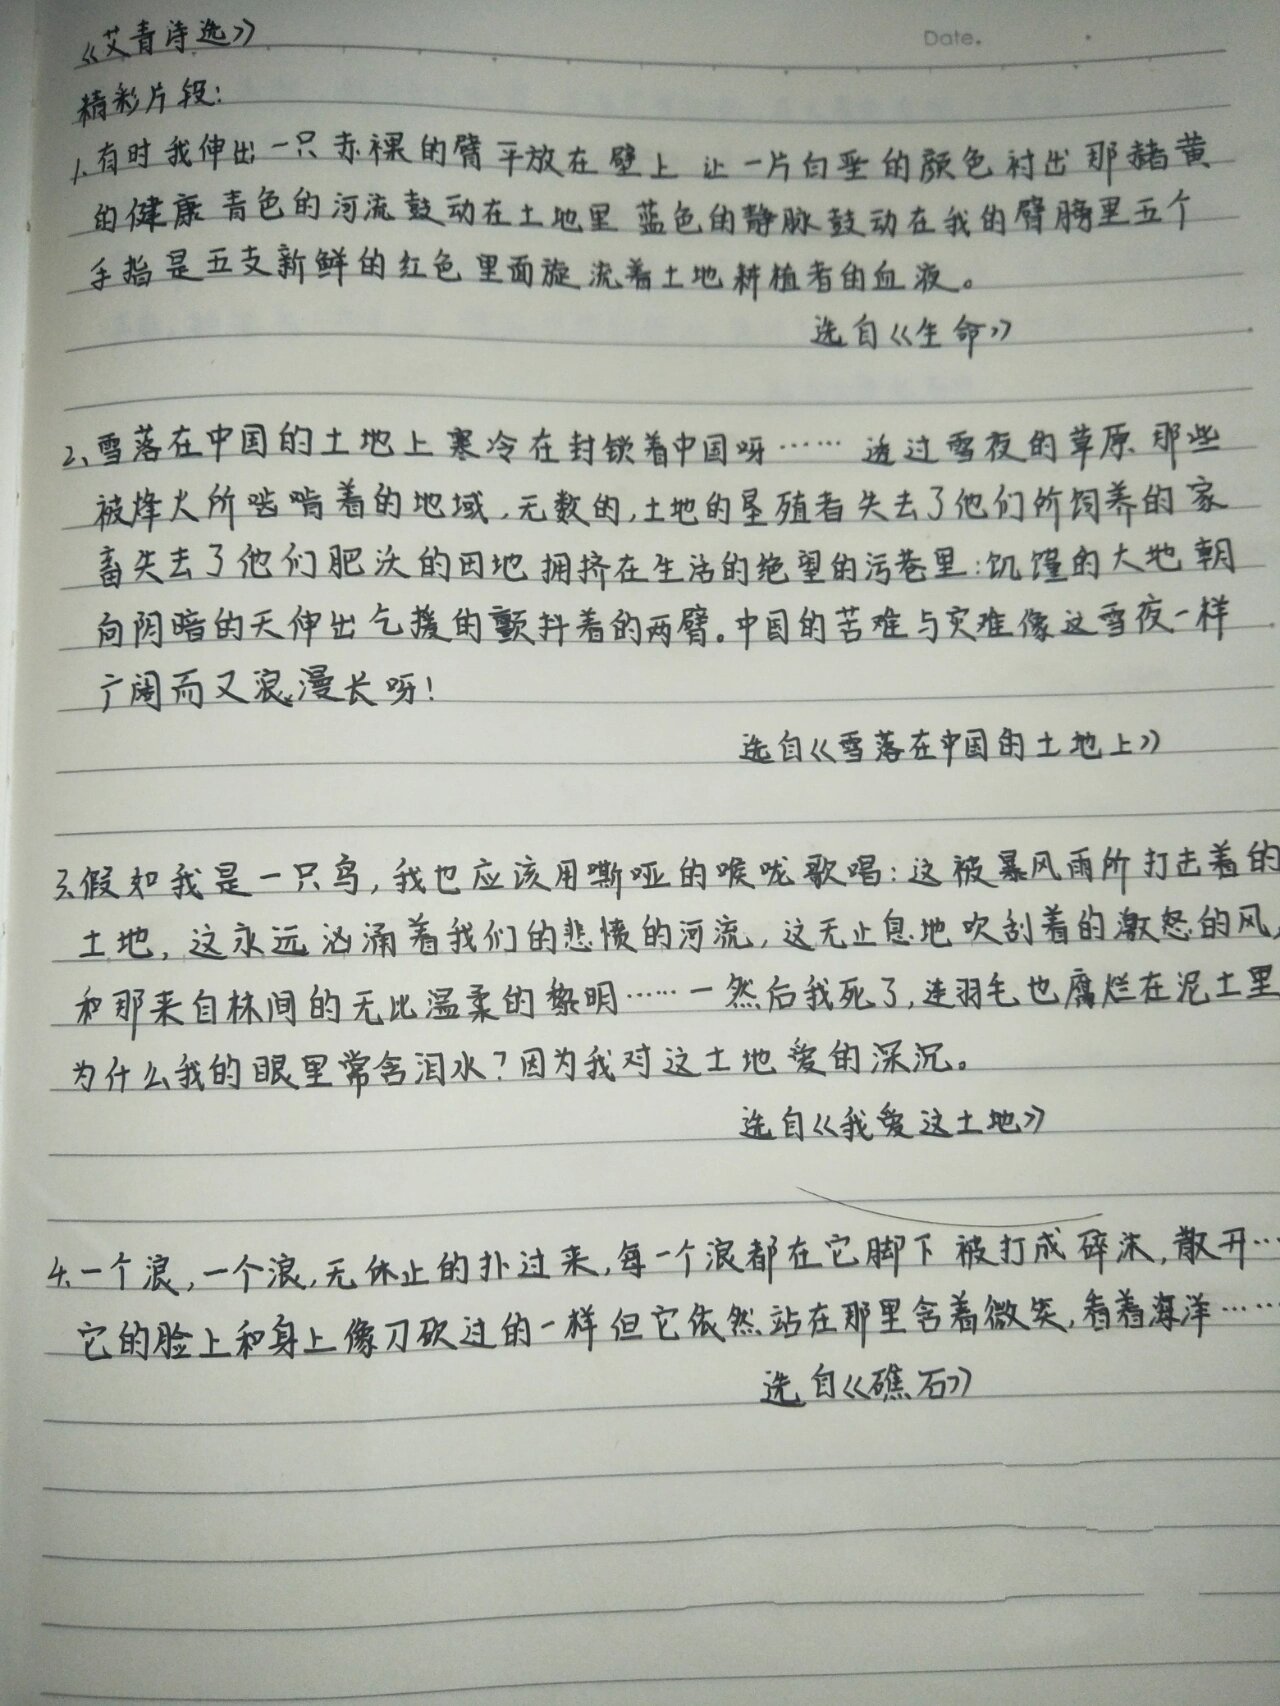 《艾青诗选》
Date.
精彩片段:
1、有时我伸出一只赤裸的臂平放在壁上 让一片白垩的颜色衬出那赭黄
的健康 青色的河流鼓动在土地里 蓝色的静脉鼓动在我的臂膀里五个
手指是五支新鲜的红色里面旋流着土地耕植者的血液。
选自《生命》
2、雪落在中国的土地上寒冷在封锁着中国呀…… 透过雪夜的草原 那些
被烽火所啮啃着的地域,无数的,土地的垦殖者失去了他们所饲养的家
畜失去了他们肥沃的田地拥挤在生活的绝望的污巷里:饥馑的大地朝
向阴暗的天伸出乞援的颤抖着的两臂。中国的苦难与灾难像这雪夜一样
广阔而又浪漫长呀!
选自《雪落在中国的土地上》
3、假如我是一只鸟,我也应该用嘶哑的喉咙歌唱:这被暴风雨所打击着的
土地,这永远汹涌着我们的悲愤的河流,这无止息地吹刮着的激怒的风,
和那来自林间的无比温柔的黎明……一然后我死了,连羽毛也腐烂在泥土里
为什么我的眼里常含泪水?因为我对这土地爱的深沉。
选自《我爱这土地》
4、一个浪,一个浪,无休止的扑过来,每一个浪都在它脚下 被打成碎沫,散开…
它的脸上和身上像刀砍过的一样但它依然站在那里含着微笑,看着海洋……
选自《礁石》